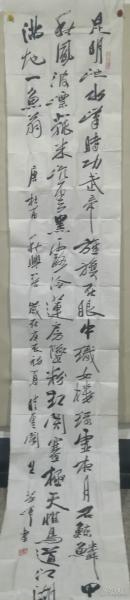 昆明池水漢時功武帝旌旗在眼中織女機絲虛夜月石鯨鱗甲
秋風波漂菰米沉雲黑露冷蓮房墜粉紅關塞極天惟鳥道江湖
滿地一魚翁 唐杜甫秋興 歲在 夏 書